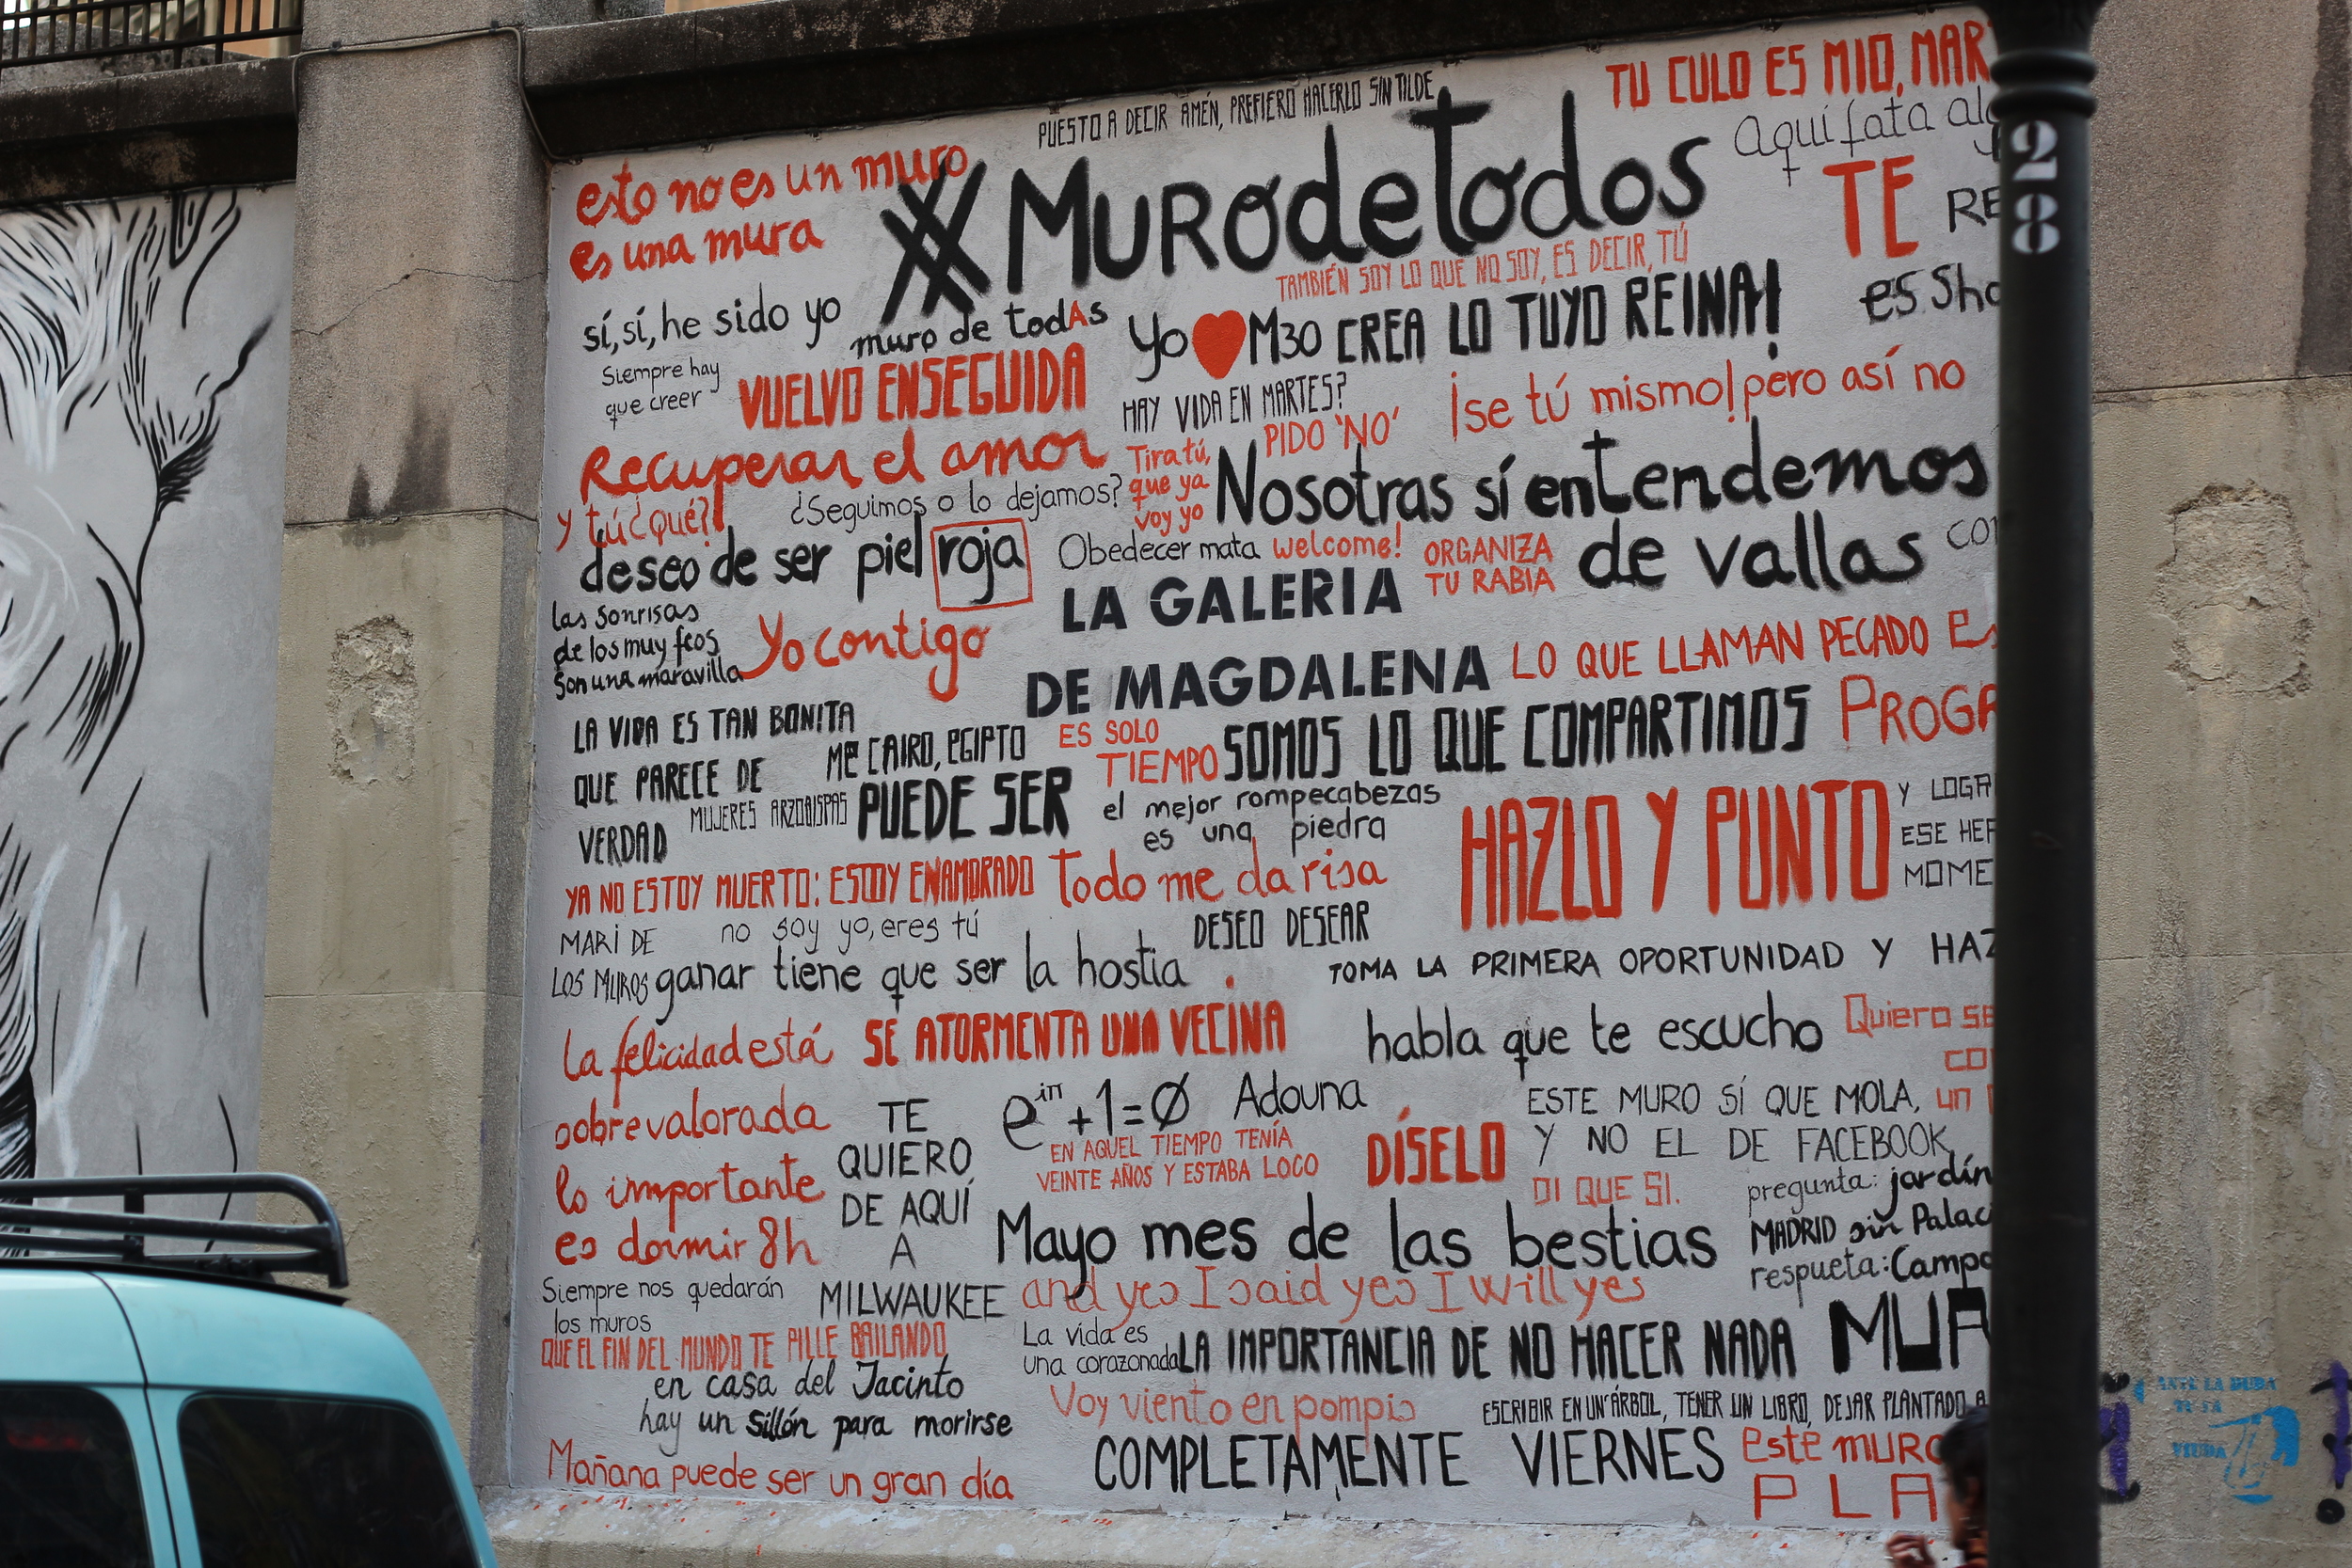 PUESTO A DECIR AMÉN, PREFIERO HACERLO SIN TILDE
TU CULO ES MIO, MAR
esto no es un muro
es una mura
#MUROdetodos
Aquí fata alg
TE
RE
TAMBIÉN SOY LO QUE NO SOY, ES DECIR, TÚ
sí, sí, he sido yo
muro de todAs
Yo ♥ M30
CREA LO TUYO REINA!
es Sho
Siempre hay
que creer
VUELVO ENSEGUIDA
HAY VIDA EN MARTES?
PIDO 'NO'
¡se tú mismo! pero así no
Recuperar el amor
Tira tú,
que ya
voy yo
Nosotras sí entendemos
de vallas
y tú ¿qué?
¿Seguimos o lo dejamos?
deseo de ser piel roja
Obedecer mata
welcome!
ORGANIZA
TU RABIA
LA GALERIA
DE MAGDALENA
las sonrisas
de los muy feos
son una maravilla
Yo contigo
LO QUE LLAMAN PECADO
LA VIDA ES TAN BONITA
QUE PARECE DE
VERDAD
ME CAIRO, EGIPTO
ES SOLO
TIEMPO
SOMOS LO QUE COMPARTIMOS
PROGR
MUJERES ARZOBISPAS
PUEDE SER
el mejor rompecabezas
es una piedra
HAZLO Y PUNTO
Y LOGR
ESE HER
MOME
YA NO ESTOY MUERTO: ESTOY ENAMORADO
Todo me da risa
MARI DE
LOS MUROS
no soy yo, eres tú
DESEO DESEAR
ganar tiene que ser la hostia
TOMA LA PRIMERA OPORTUNIDAD Y HAZ
la felicidad está
sobrevalorada
lo importante
es dormir 8h
SE ATORMENTA UNA VECINA
habla que te escucho
Quiero se
co
un
TE
QUIERO
DE AQUÍ
A
MILWAUKEE
e^iπ+1=Ø
Adouna
EN AQUEL TIEMPO TENÍA
VEINTE AÑOS Y ESTABA LOCO
DÍSELO
ESTE MURO SÍ QUE MOLA,
Y NO EL DE FACEBOOK
DI QUE SI.
pregunta: jardín
MADRID sin Palac
respueta: Campo
Mayo mes de las bestias
and yes I said yes I will yes
Siempre nos quedarán
los muros
QUE EL FIN DEL MUNDO TE PILLE BAILANDO
La vida es
una corazonada
LA IMPORTANCIA DE NO HACER NADA
MUA
en casa del Jacinto
hay un sillón para morirse
Voy viento en pompis
ESCRIBIR EN UN ÁRBOL, TENER UN LIBRO, DEJAR PLANTADO A
Mañana puede ser un gran día
COMPLETAMENTE VIERNES
este MURO
PLA
28
ANTE LA DUDA
DE LA
VIUDA